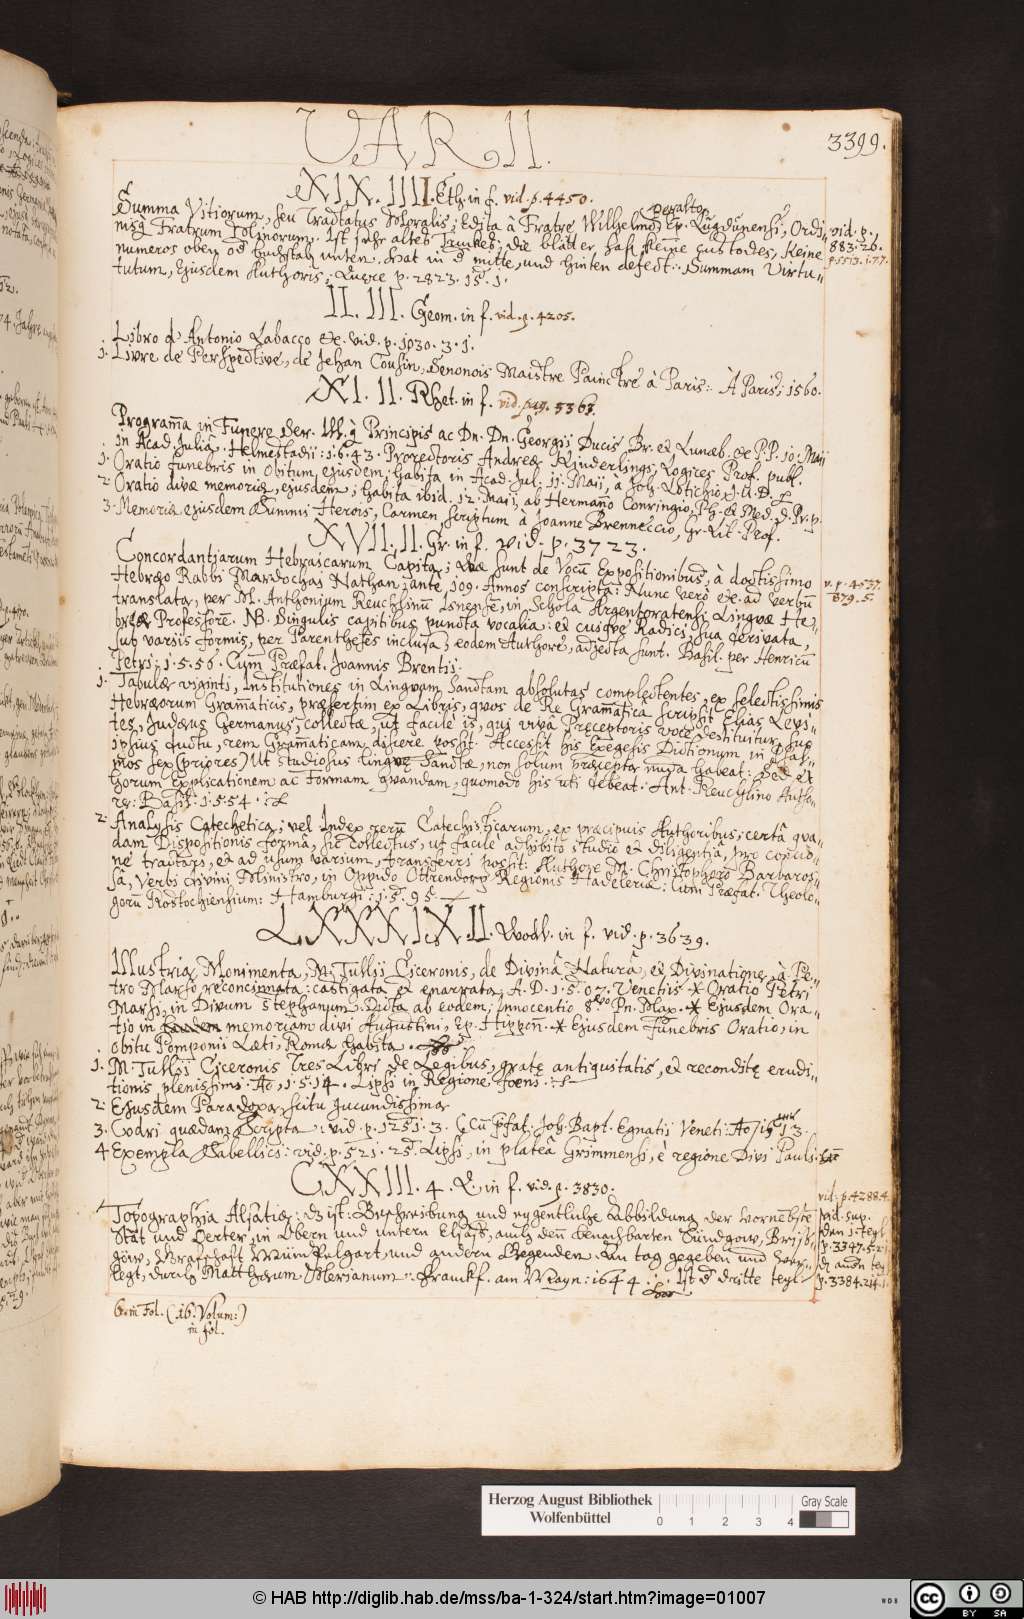 VAR II.
3399.
XIX. IIII. Eth. in f. vid. p. 4450.
Summa Vitiorum, seu Tractatus Moralis; Edita à Fratre Wilhelmo Peralto Ep. Lugdunensi, Ordi-
nisq Fratrum Minorum. Ist sehr altes; die blätter hab keine custodes, Keine
numeros oben od buchstab unten. Hat in d mitte, und hinten defect: Summam Virtu-
tutum, Ejusdem Authoris; Quære p. 2823. 15. 1.
vid. p.
883. 26.
p. 5513. 1. 77.
II. III. Geom. in f. vid. p. 4205.
Libro d' Antonio Labacco &c. vid. p. 1030. 3. 1.
1. Livre de Perspective, de Jehan Cousin, Senonois Maistre Painctre à Paris: À Paris; 1560.
XI. II. Rhet. in f. vid. pag. 5363.
Programa in Funere der. Ill. q Principis ac Dn. Dn. Georgii Ducis Br. et Lunæb. &c P.P. 10. Maii
in Acad. Julia, Helmestadii: 1.6.43. Prorectoris Andreæ Kinderlings, Logices Prof. publ.
1. Oratio funebris in Obitum, ejusdem; habita in Acad. Jul. 11. Maii, à Joh. Lotichio, J.U.D.
2. Oratio divæ memoriæ, ejusdem; habita ibid. 12. Maii, ab Hermano Conringio, Ph. & Med. D. Pr. p.
3. Memoriæ ejusdem Summis Herois, Carmen, scriptum à Joanne Brenneccio, Gr. Lit. Prof.
XVII. II. Gr. in f. vid. p. 3723.
Concordantiarum Hebraicarum Capita; Quæ sunt de Vocu Expositionibus, à doctissimo
Hebræo Rabbi Mardochai Nathan, ante, 109. Annos conscripta: Nunc verò &c. ad verbu
translata, per M. Anthonium Reuchlinu Isnense, in Schola Argentoratensi Linguæ He-
bræe Professore. NB. Singulis capitibus puncta vocalia: et cuique Radici, sua derivata,
sub variis formis, per Parentheses inclusa, eodem Authore, adjecta sunt. Basil. per Henricu
Petri: 1.5.56. Cum Præfat. Joannis Brentii.
v. p. 4537.
879. 5.
1. Tabulæ viginti, Institutiones in Linguam Sanctam absolutas complectentes, ex selectissimis
Hebræorum Gramaticis, præsertim ex Libris, quos de Re Gramatica scripsit Elias Levi-
tes, Judæus Germanus, collectæ, ut facile is, qui vivâ Præceptoris voce destituitur, suo
ipsius ductu, rem Gramaticam discere possit. Accessit his Exegesis Dictionum, in Psal-
mos sex (priores) Ut studiosus linguæ Sanctæ, non solum præcepta nuda habeat: Sed et
horum Explicationem ac Formam quandam, quomodo his uti debeat. Ant. Reuchlino Autho-
re: Basil: 1.5.54.
2. Analysis Catechetica; vel Index reru Catechisticarum, ex præcipuis Authoribus; certâ qua-
dam Dispositionis formâ, sic collectus, ut facile adhibito studio et diligentiâ, pro concio-
ne tractari, et ad usum varium, transferri possit: Authore M. Christophoro Barbaros-
sâ, Verbi divini Ministro, in Oppido Otterndorp Regionis Hadeleriæ: Cum Præfat. Theolo-
goru Rostochiensium: Hamburgi: 1.5.95.
LXXXIX II. Quodl. in f. vid. p. 3639.
Illustria Monimenta, M. Tullii Ciceronis, de Divinâ Naturâ, et Divinatione, à Pe-
tro Marso, reconcinnata: castigata et enarrata, A.D. 1.5.07. Venetiis * Oratio Petri
Marsi, in Divum Stephanum: Dicta ab eodem; Innocentio 8vo. Pn. Max. * Ejusdem Ora-
tio in memoriam divi Augustini, Ep. Hippon. * Ejusdem Funebris Oratio, in
obitu Pomponii Læti, Romæ habita.
1. M. Tullii Ciceronis Tres Libri de Legibus, gratę antiquitatis, et reconditę erudi-
tionis plenissimi. Ao, 1.5.14. Lipsi in Regione foeni.
2. Ejusdem Paradoxa, scitu jucundissima
3. Codri quædam Scripta: vid. p. 1251. 3. Cu Pfat. Joh. Bapt. Egnatii Veneti: Ao 1513.
4 Exempla Sabellici: vid. p. 521. 25. Lipsi, in plateâ Grimmensi, è regione Divi Pauli:
CXXIII. 4. Q. in f. vid. p. 3830.
Topographia Alsatiæ; ds ist: Beschreibung und eygentliche Abbildung der vornebste
Stät und Oerter, in Obern und untern Elsaß, auch den benachbarten Sundgow, Briß-
göw, Graffschaft Mümpelgart, und andern Gegenden. An tag gegeben und verl-
legt, durch Matthæum Merianum: Franckf. am Mayn: 1644. Ist d dritte teyl
vid. p. 4288. 4.
vid. sup.
den 1. teyl
p. 3347. 52. 1
d andn teyl
p. 3384. 214. 1.
6. in Fol. (16. Volum:)
in fol.
Herzog August Bibliothek
Wolfenbüttel
Gray Scale
0 1 2 3 4
© HAB http://diglib.hab.de/mss/ba-1-324/start.htm?image=01007
WDB
cc BY SA